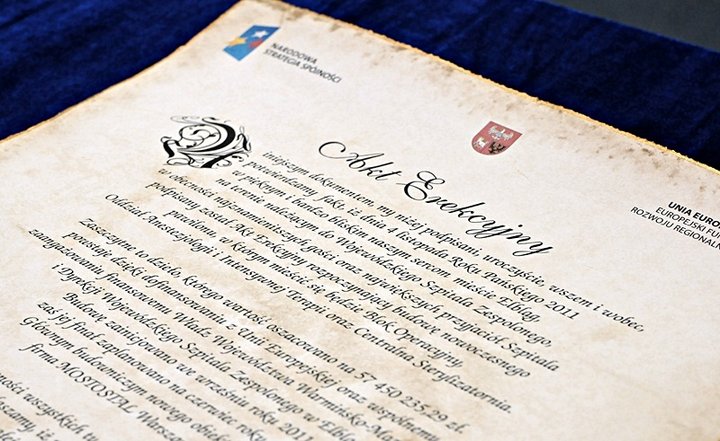 NARODOWA
STRATEGIA SPÓJNOŚCI
UNIA EURO
EUROPEJSKI FU
ROZWOJU REGIONALN
Akt Erekcyjny
Niniejszym dokumentem, my niżej podpisani, uroczyście, wszem i wobec,
potwierdzamy fakt, iż dnia 4 listopada Roku Pańskiego 2011
w pięknym i bardzo bliskim naszym sercom mieście Elbląg,
na terenie należącym do Wojewódzkiego Szpitala Zespolonego,
w obecności najznamienitszych gości oraz największych przyjaciół Szpitala
podpisany został Akt Erekcyjny rozpoczynający budowę nowoczesnego
pawilonu, w którym mieścić się będzie Blok Operacyjny,
Oddział Anestezjologii i Intensywnej Terapii oraz Centralna Sterylizatornia.
Zaszczytne to dzieło, którego wartość oszacowano na 57 450 235,29 zł
powstaje dzięki dofinansowaniu z Unii Europejskiej oraz wspólnemu
zaangażowaniu finansowemu Władz Województwa Warmińsko-Maz
i Dyrekcji Wojewódzkiego Szpitala Zespolonego w Elblą
Budowę zainicjowano we wrześniu roku 2011
zaś jej finał zaplanowano na czerwiec roku
Głównym budowniczym nowego obiek
firma MOSTOSTAL Warsza
ności wszystkich ty
szamy, iż